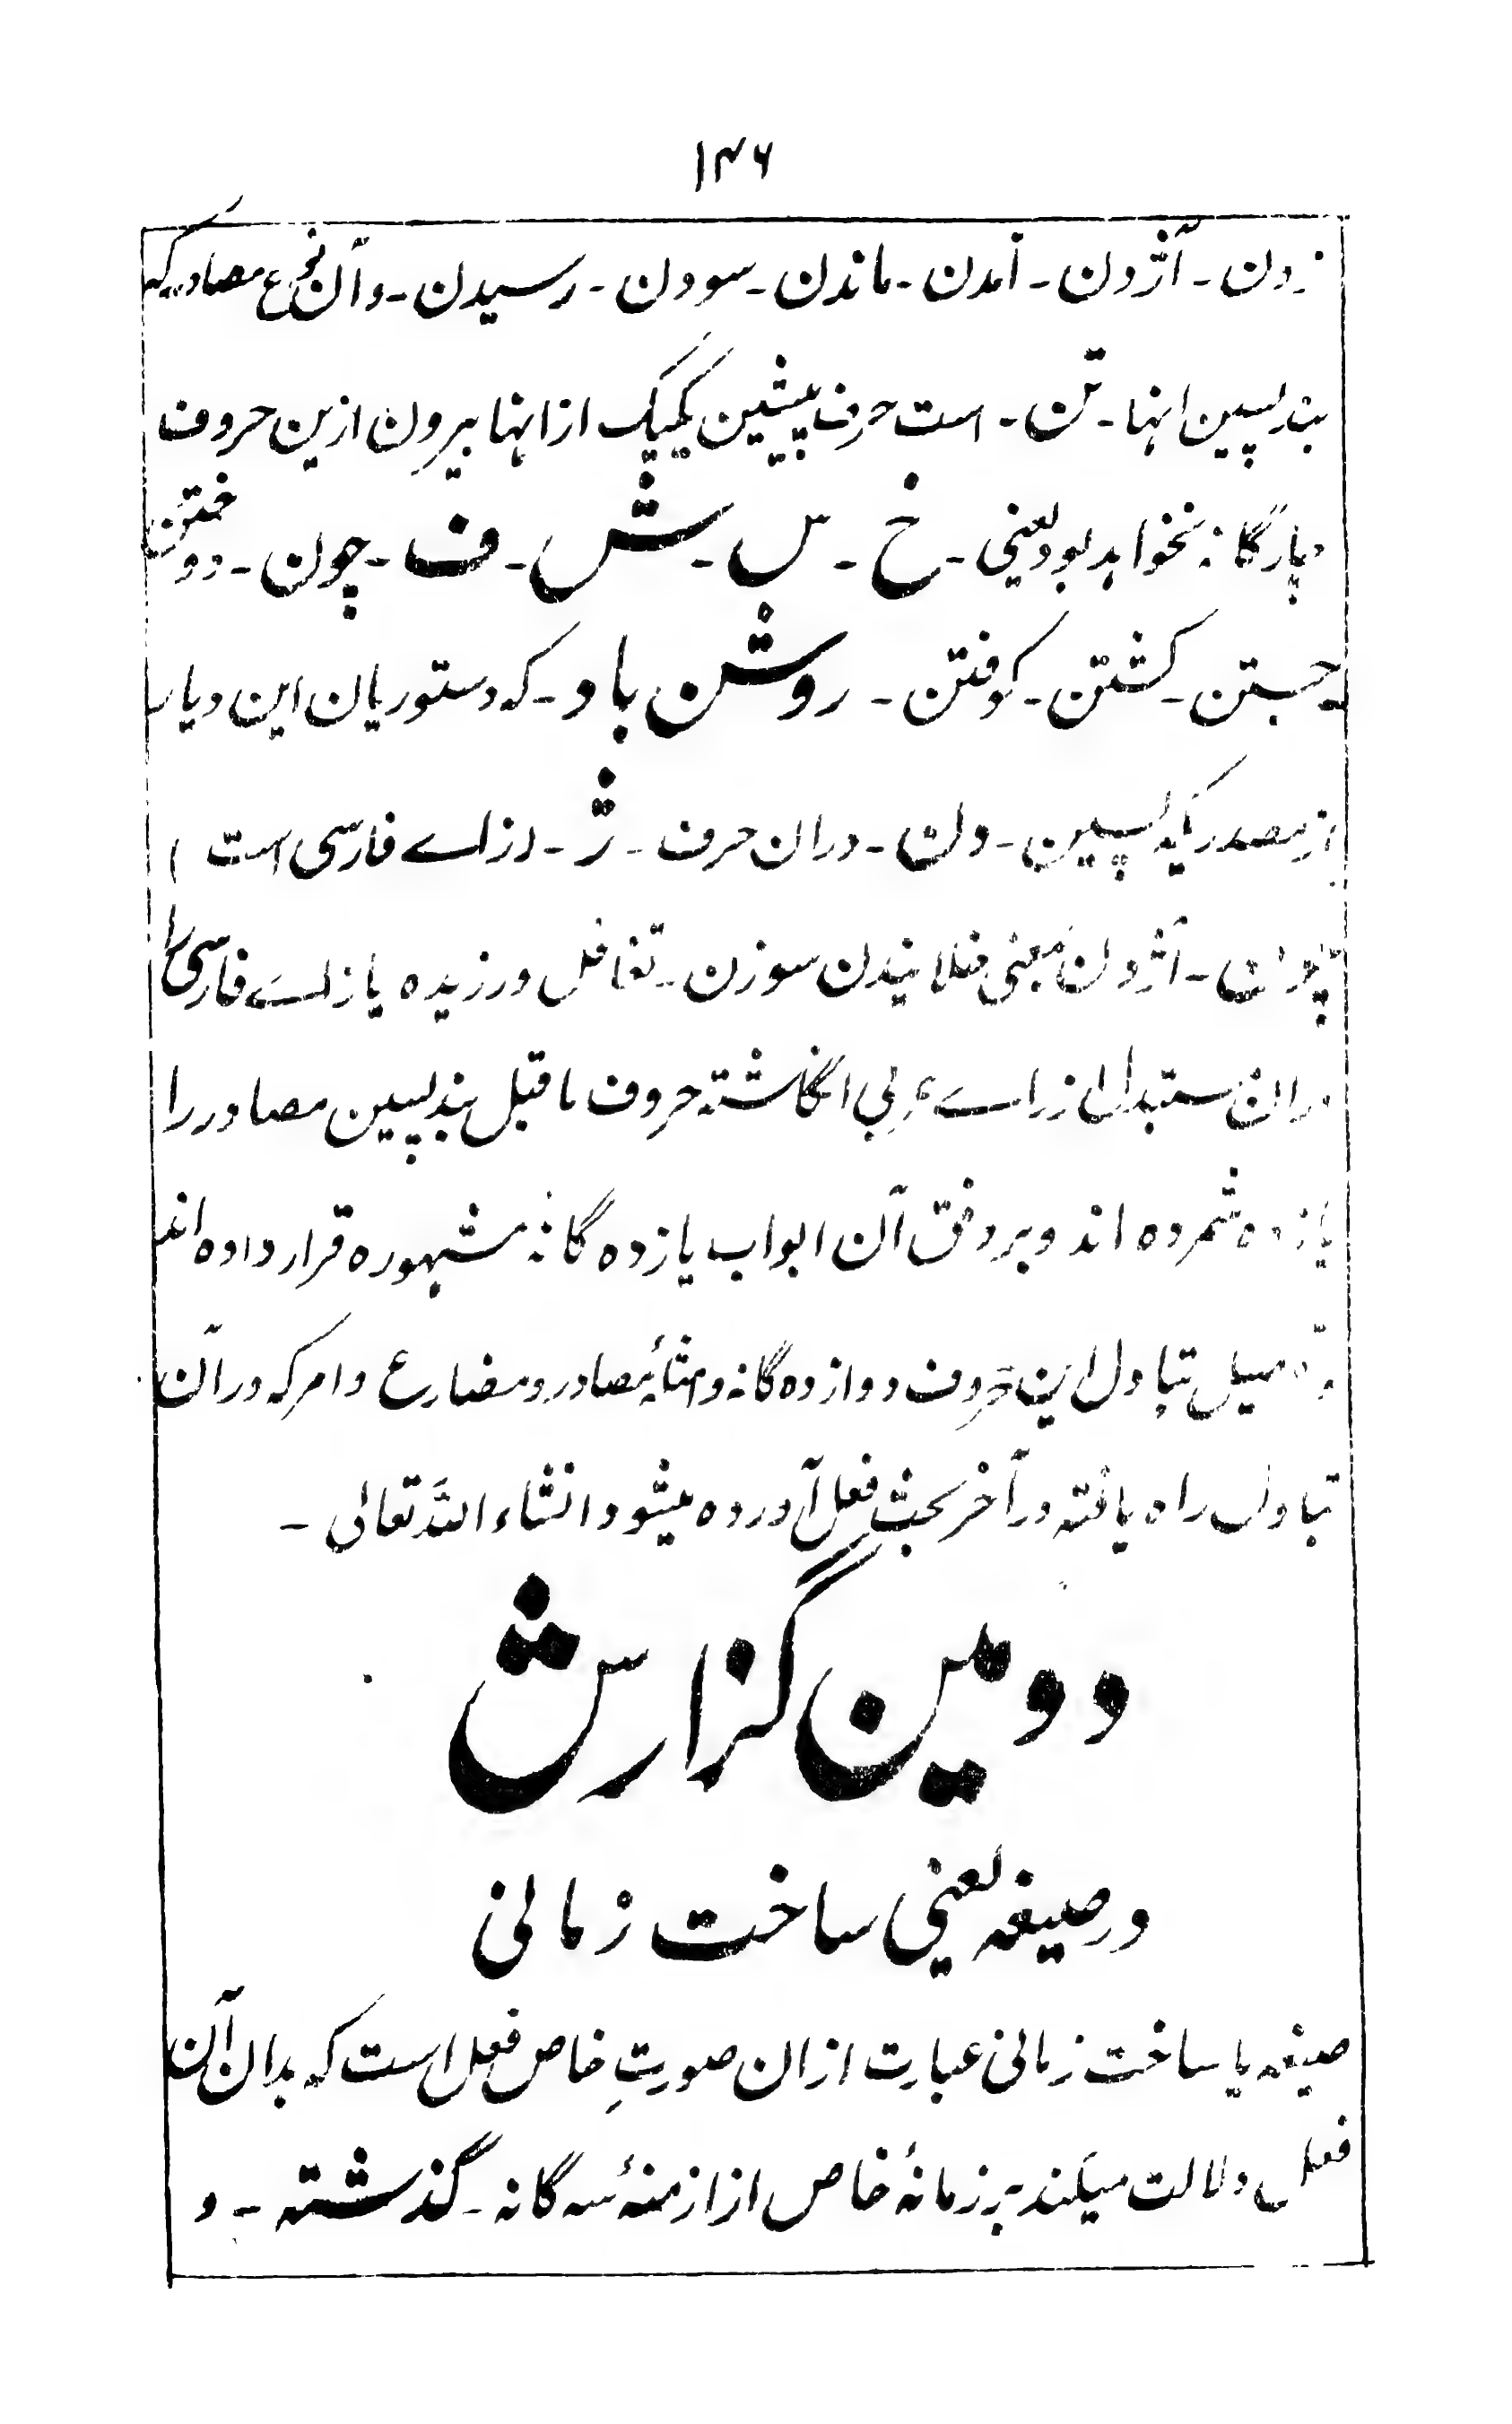 ۱۴۶
زدن - آژدن - آمدن - ماندن - سودن - رسیدن - و آن نوع مصادر که
بند پسین اینها - تن - است حرف پیشین یکیک از اینها بیرون ازین حروف
چهارگانه نخواهد بود یعنی - خ - س - ش - ف - چون - دوختن
جستن - کشتن - کوفتن - روشن باد - که دستوریان این دیار
از مصدریکه پسین - دن - دران حرف - ژ - (زاے فارسی است)
چون - آژدن بمعنی خلانیدن سوزن - تغافل ورزیده یا زاے فارسی را
دران مستبدل از زاے عربی انگاشته حروف ماقبل بند پسین مصادر را
یازده شمرده اند و بر وفق آن ابواب یازده گانه مشهوره قرار داده اند
تبادل این حروف دوازده گانه و امثلۂ مصادر و مضارع و امر که در آن
تبادل راه یافته در آخر بحث فعل آورده میشود انشاء اللہ تعالی -
دومین گزارش
در صیغه یعنی ساخت زمانی
صیغه یا ساخت زمانی عبارت از ان صورتِ خاص فعل است که بدان آن
فعل دلالت میکند بر زمانۂ خاص از ازمنۂ سه گانه - گذشته - و